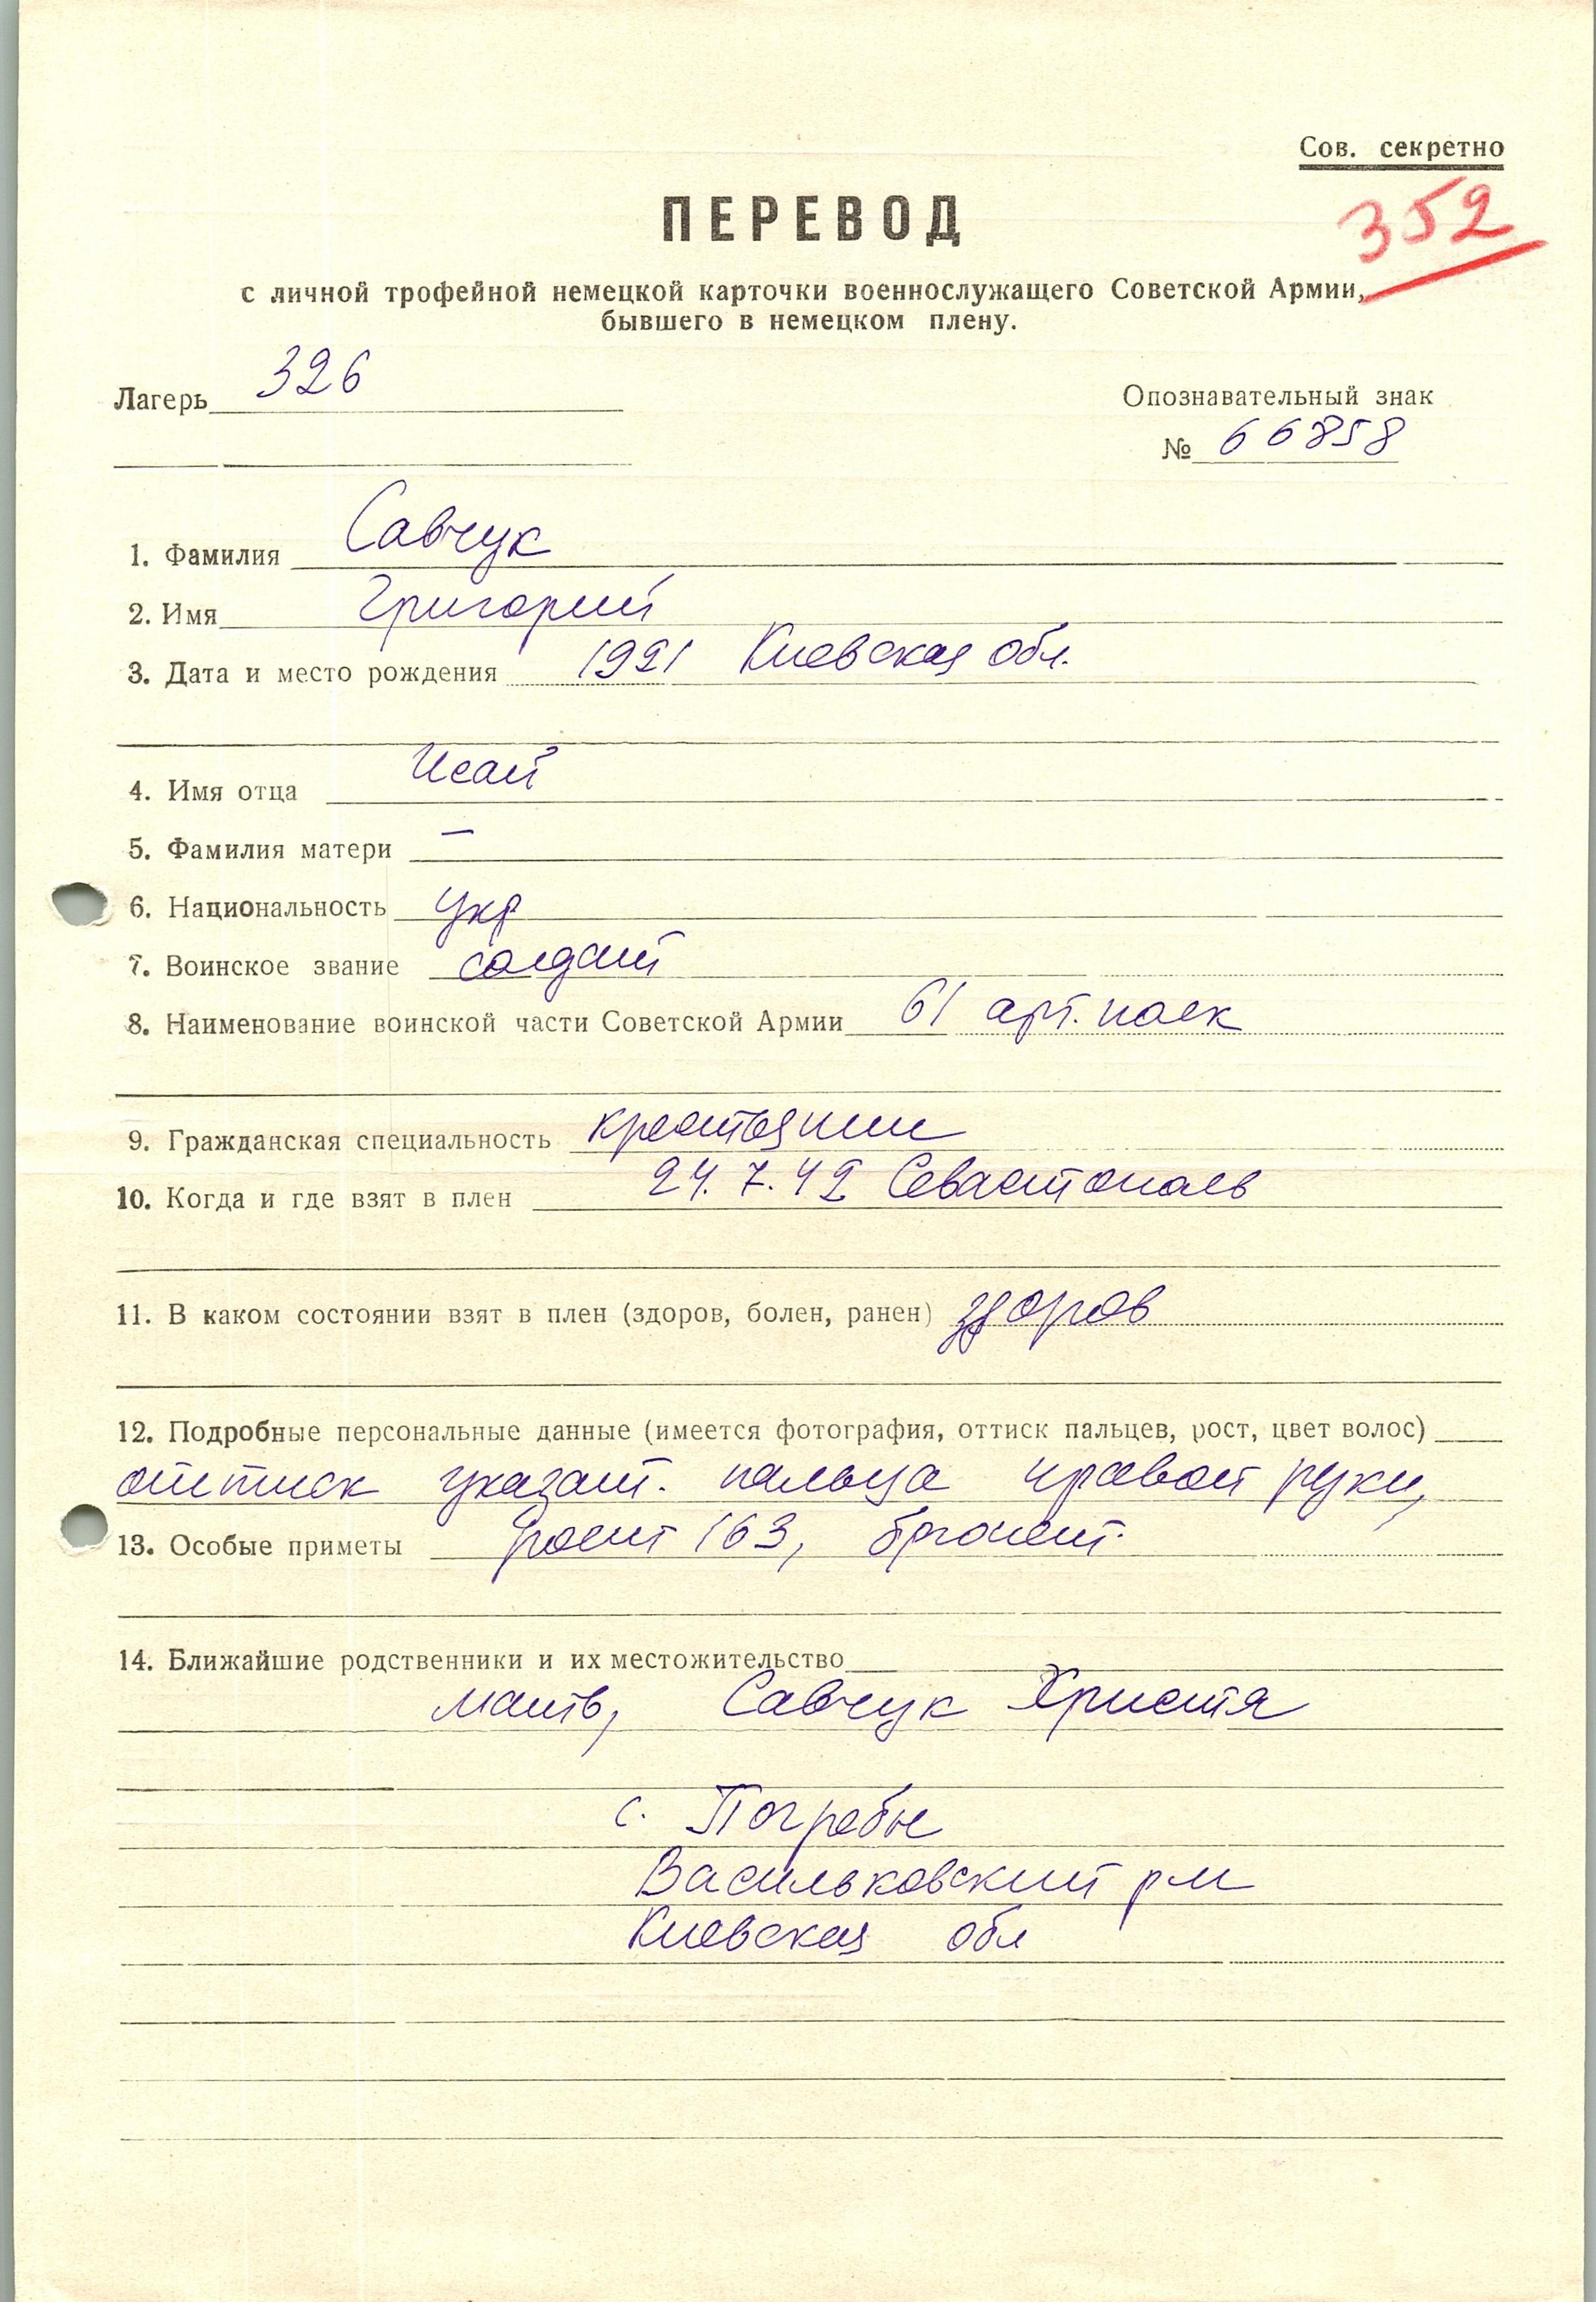 Сов. секретно
352
ПЕРЕВОД
с личной трофейной немецкой карточки военнослужащего Советской Армии,
бывшего в немецком плену.
Лагерь 326
Опознавательный знак
№ 66858
1. Фамилия Савчук
2. Имя Григорий
3. Дата и место рождения 1921 Киевская обл.
4. Имя отца Исай
5. Фамилия матери —
6. Национальность укр
7. Воинское звание солдат
8. Наименование воинской части Советской Армии 61 арт. полк
9. Гражданская специальность крестьянин
10. Когда и где взят в плен 24.7.42 Севастополь
11. В каком состоянии взят в плен (здоров, болен, ранен) здоров
12. Подробные персональные данные (имеется фотография, оттиск пальцев, рост, цвет волос)
оттиск указат. пальца правой руки,
13. Особые приметы рост 163, брюнет.
14. Ближайшие родственники и их местожительство
мать, Савчук Христя
с. Погребы
Васильковский р-н
Киевская обл